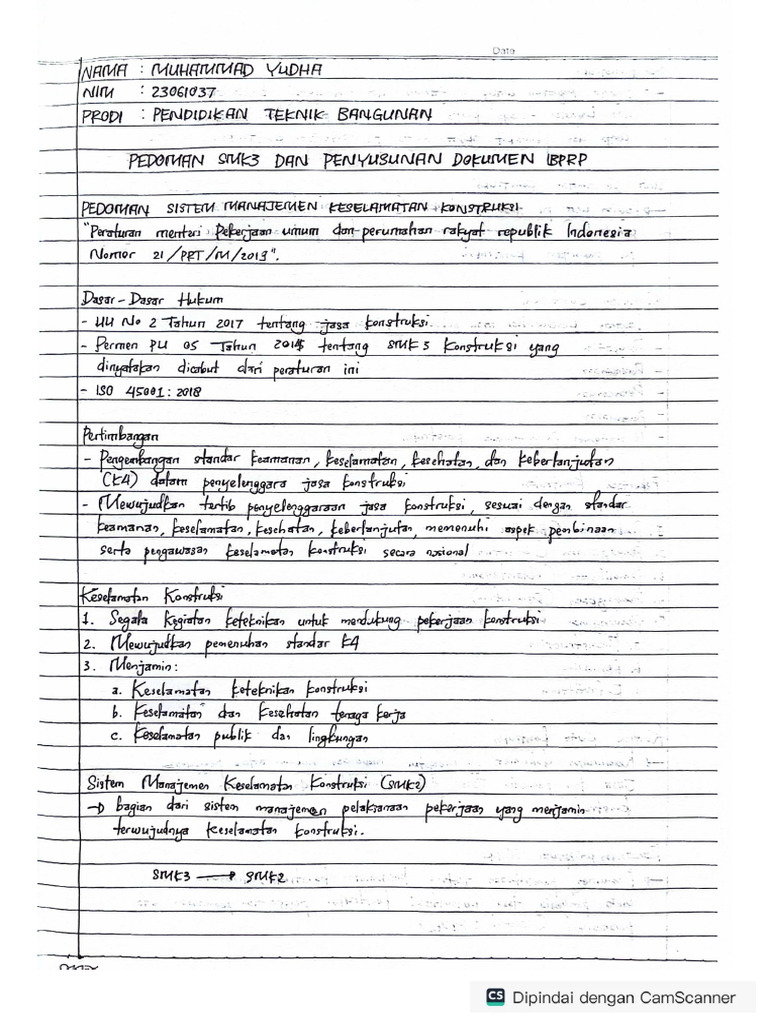 Date
NAMA : MUHAMMAD YUDHA
NIM : 23061037
PRODI : PENDIDIKAN TEKNIK BANGUNAN
PEDOMAN SMK3 DAN PENYUSUNAN DOKUMEN IBPRP
PEDOMAN SISTEM MANAJEMEN KESELAMATAN KONSTRUKSI
"Peraturan menteri Pekerjaan umum dan perumahan rakyat republik Indonesia
Nomor 21/PRT/M/2019".
Dasar-Dasar Hukum
- UU No 2 Tahun 2017 tentang jasa konstruksi
- Permen PU 05 Tahun 2014 tentang SMK3 Konstruksi yang
dinyatakan dicabut dari peraturan ini
- ISO 45001:2018
Pertimbangan
- Pengembangan standar keamanan, keselamatan, kesehatan, dan keberlanjutan
(K4) dalam penyelenggara jasa konstruksi
- Mewujudkan tertib penyelenggaraan jasa konstruksi, sesuai dengan standar
keamanan, keselamatan, kesehatan, keberlanjutan, memenuhi aspek pembinaan
serta pengawasan keselamatan konstruksi secara nasional
Keselamatan Konstruksi
1. Segala Kegiatan keteknikan untuk mendukung pekerjaan konstruksi
2. Mewujudkan pemenuhan standar K4
3. Menjamin:
a. Keselamatan keteknikan konstruksi
b. Keselamatan dan Kesehatan tenaga kerja
c. Keselamatan publik dan lingkungan
Sistem Manajemen Keselamatan Konstruksi (SMK2)
→ bagian dari sistem manajemen pelaksanaan pekerjaan yang menjamin
terwujudnya Keselamatan konstruksi.
SMK3 → SMK2
CS Dipindai dengan CamScanner